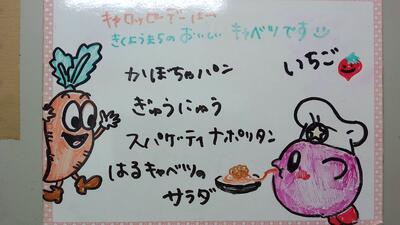 キャロッピーデーは…
きくようまちの おいしい キャベツです
いちご
かぼちゃパン
ぎゅうにゅう
スパゲッティナポリタン
はるキャベツの
サラダ